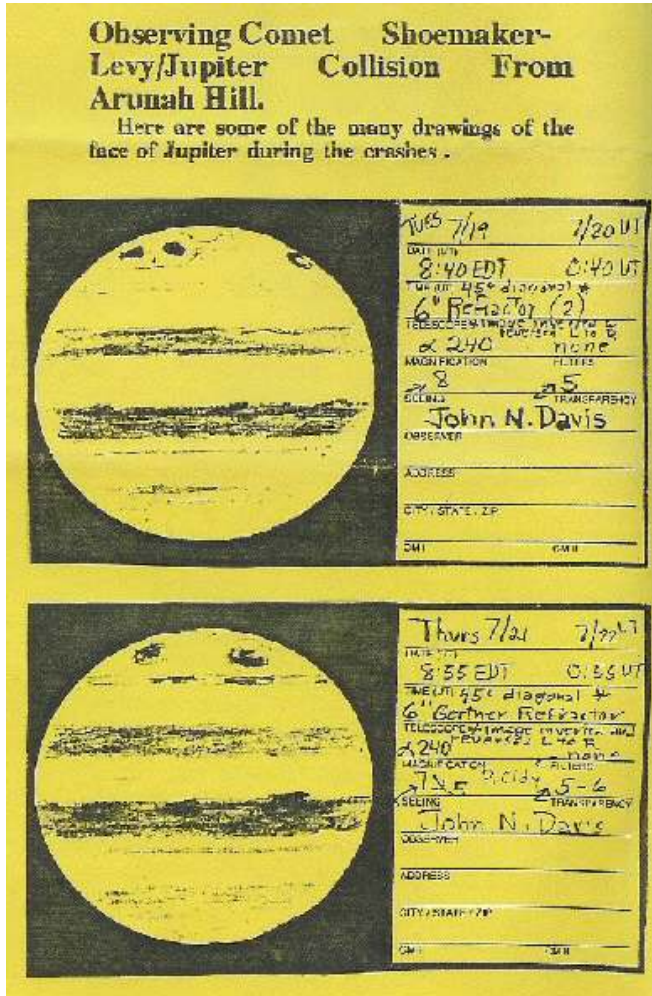 Observing Comet Shoemaker-
Levy/Jupiter Collision From
Arunah Hill.
Here are some of the many drawings of the
face of Jupiter during the crashes.
TUES 7/19 7/20 UT
DATE (UT)
8:40 EDT 0:40 UT
TIME (UT) 45° diagonal *
6" Refractor (2)
TELESCOPE * image inverted &
reversed L to R
240 none
MAGNIFICATION FILTERS
8 5
SEEING TRANSPARENCY
John N. Davis
OBSERVER
ADDRESS
CITY / STATE / ZIP
CM I CM II
Thurs 7/21 7/22 UT
DATE (UT)
8:55 EDT 0:55 UT
TIME (UT) 45° diagonal *
6" Refractor
TELESCOPE * image inverted and
reverses L to R
240 none
MAGNIFICATION FILTERS
7 5-6
SEEING TRANSPARENCY
John N. Davis
OBSERVER
ADDRESS
CITY / STATE / ZIP
CM I CM II